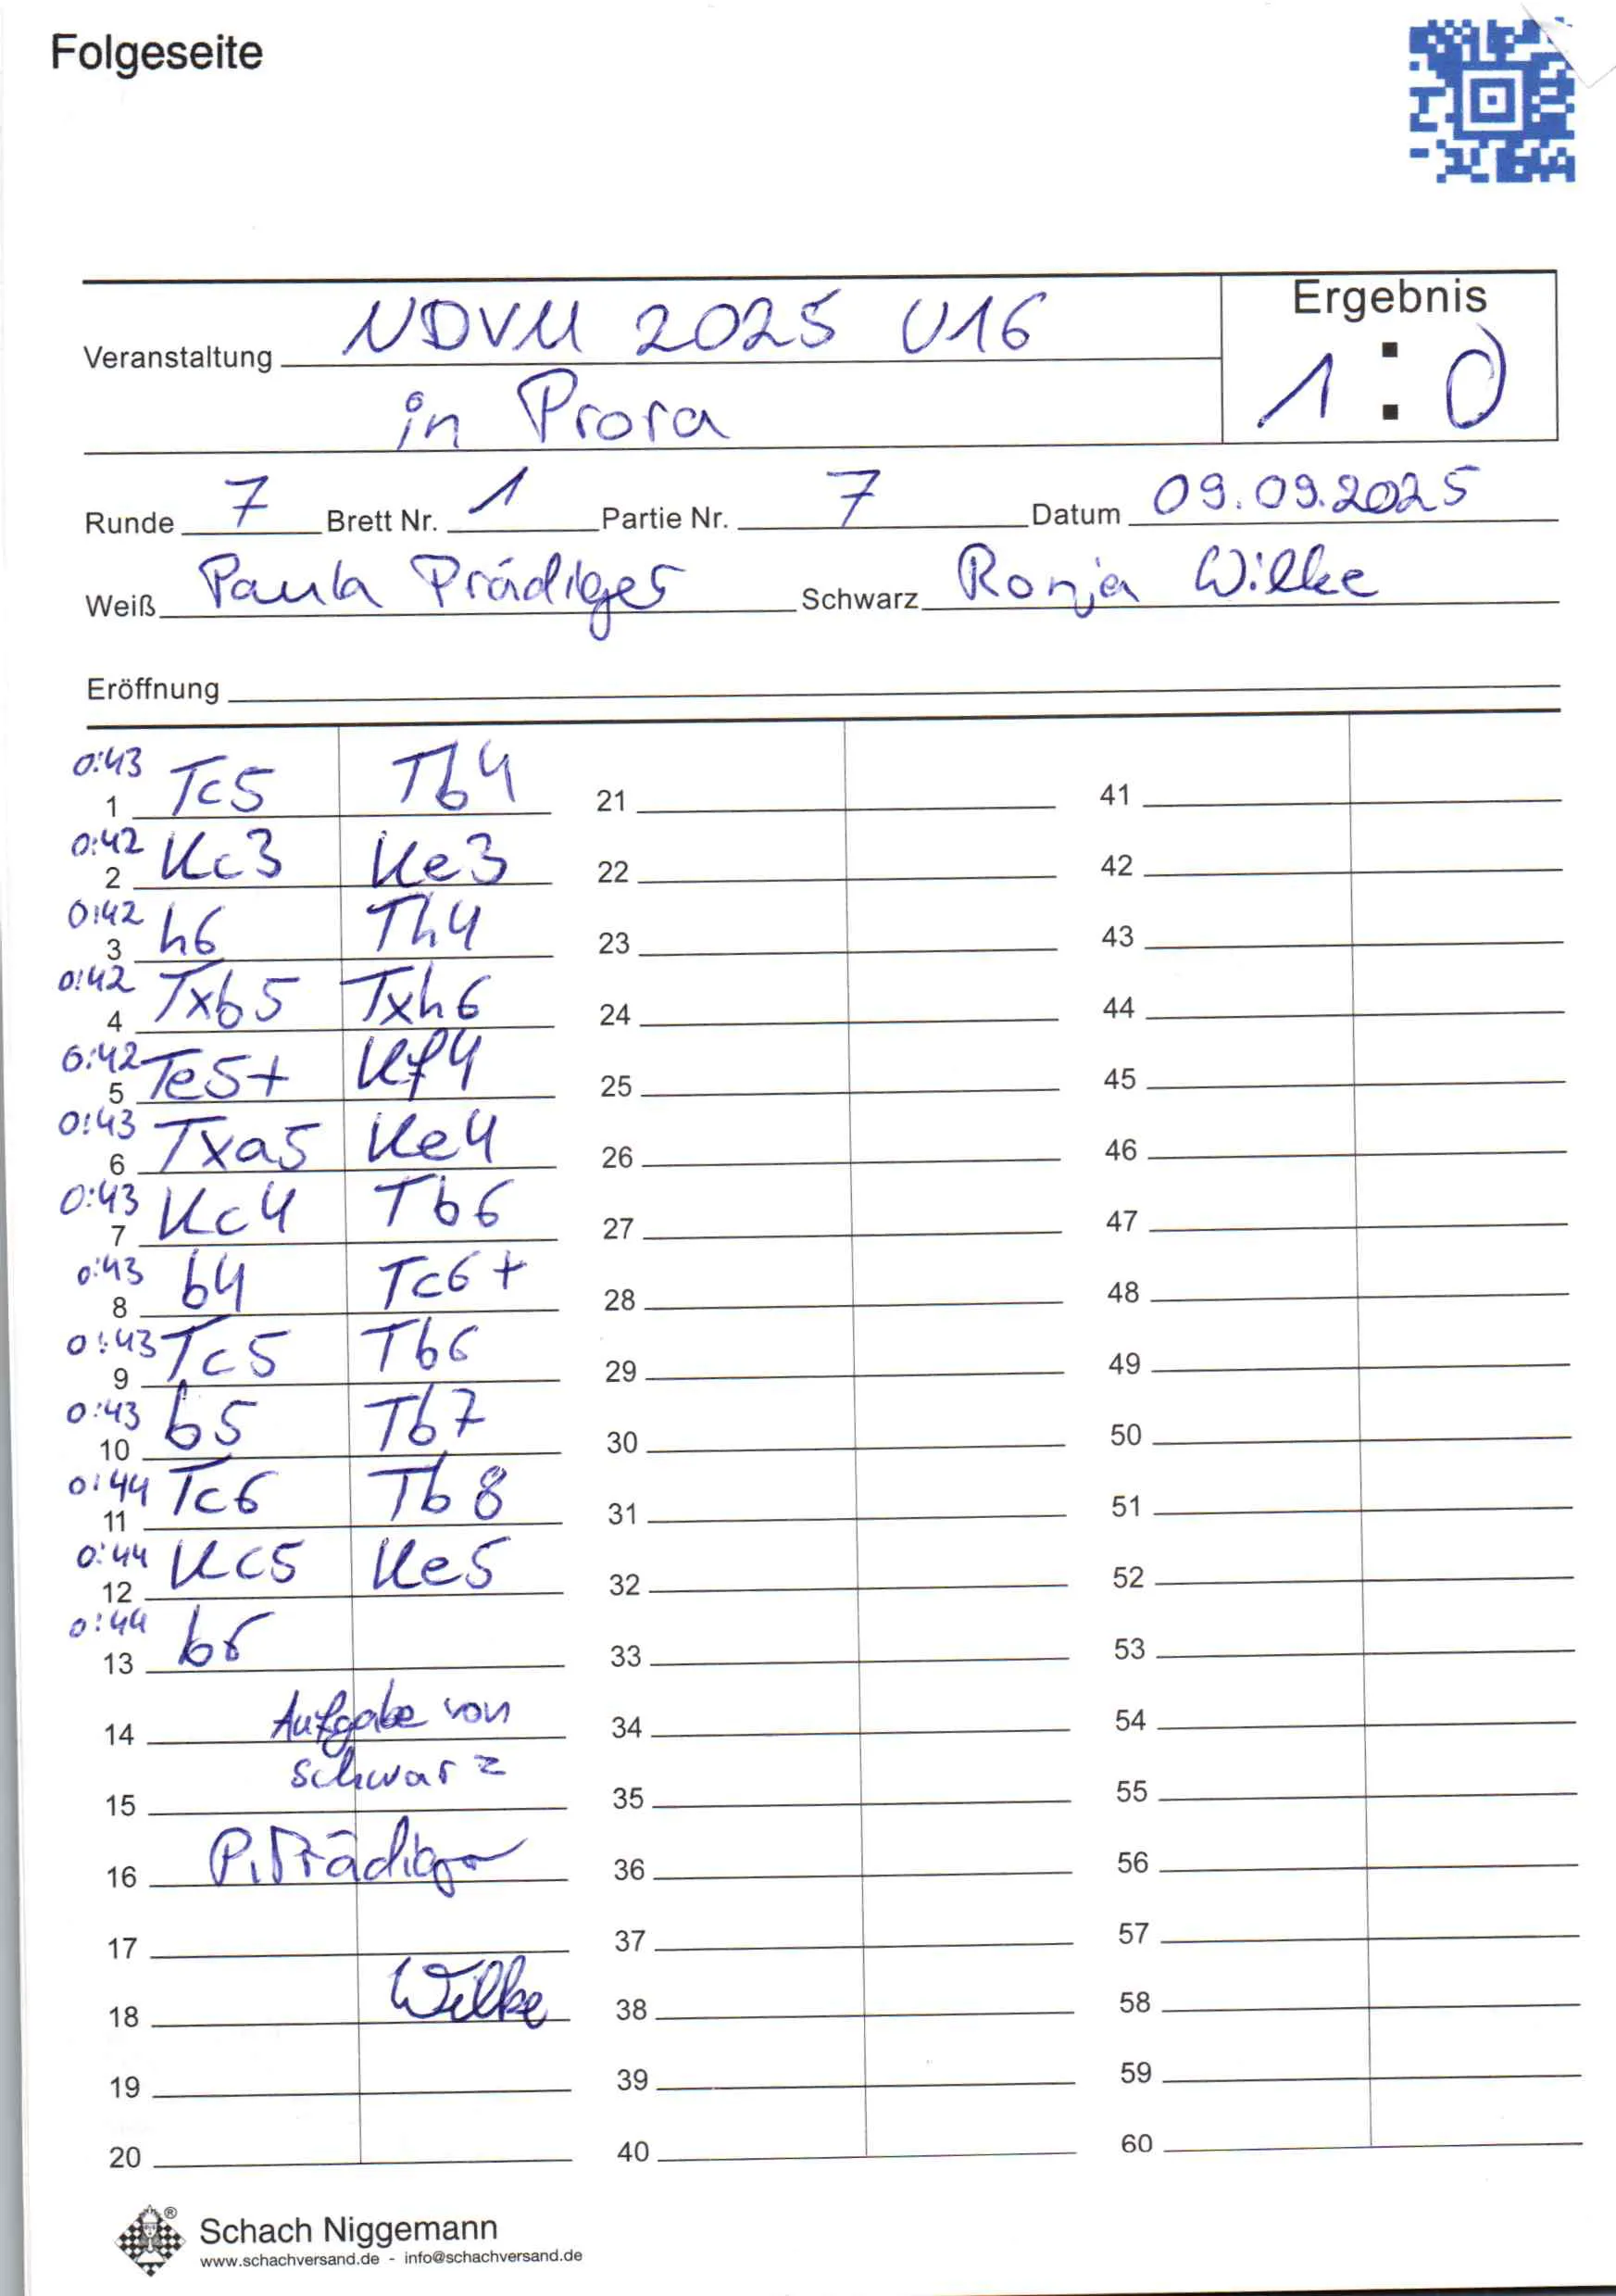 Folgeseite
Veranstaltung NDVM 2025 U16
in Prora
Ergebnis
1 : 0
Runde 7 Brett Nr. 1 Partie Nr. 7 Datum 09.09.2025
Weiß Paula Prädiger Schwarz Ronja Wilke
Eröffnung
0:43 1 Tc5 Tb4 21 41
0:42 2 Kc3 Ke3 22 42
0:42 3 h6 Th4 23 43
0:42 4 Txb5 Txh6 24 44
0:42 5 Te5+ Kf4 25 45
0:43 6 Txa5 Ke4 26 46
0:43 7 Kc4 Tb6 27 47
0:43 8 b4 Tc6+ 28 48
0:43 9 Tc5 Tb6 29 49
0:43 10 b5 Tb7 30 50
0:44 11 Tc6 Tb8 31 51
0:44 12 Kc5 Ke5 32 52
0:44 13 b6 33 53
14 Aufgabe von 34 54
15 schwarz 35 55
16 P. Prädiger 36 56
17 37 57
18 Wilke 38 58
19 39 59
20 40 60
Schach Niggemann
www.schachversand.de - info@schachversand.de